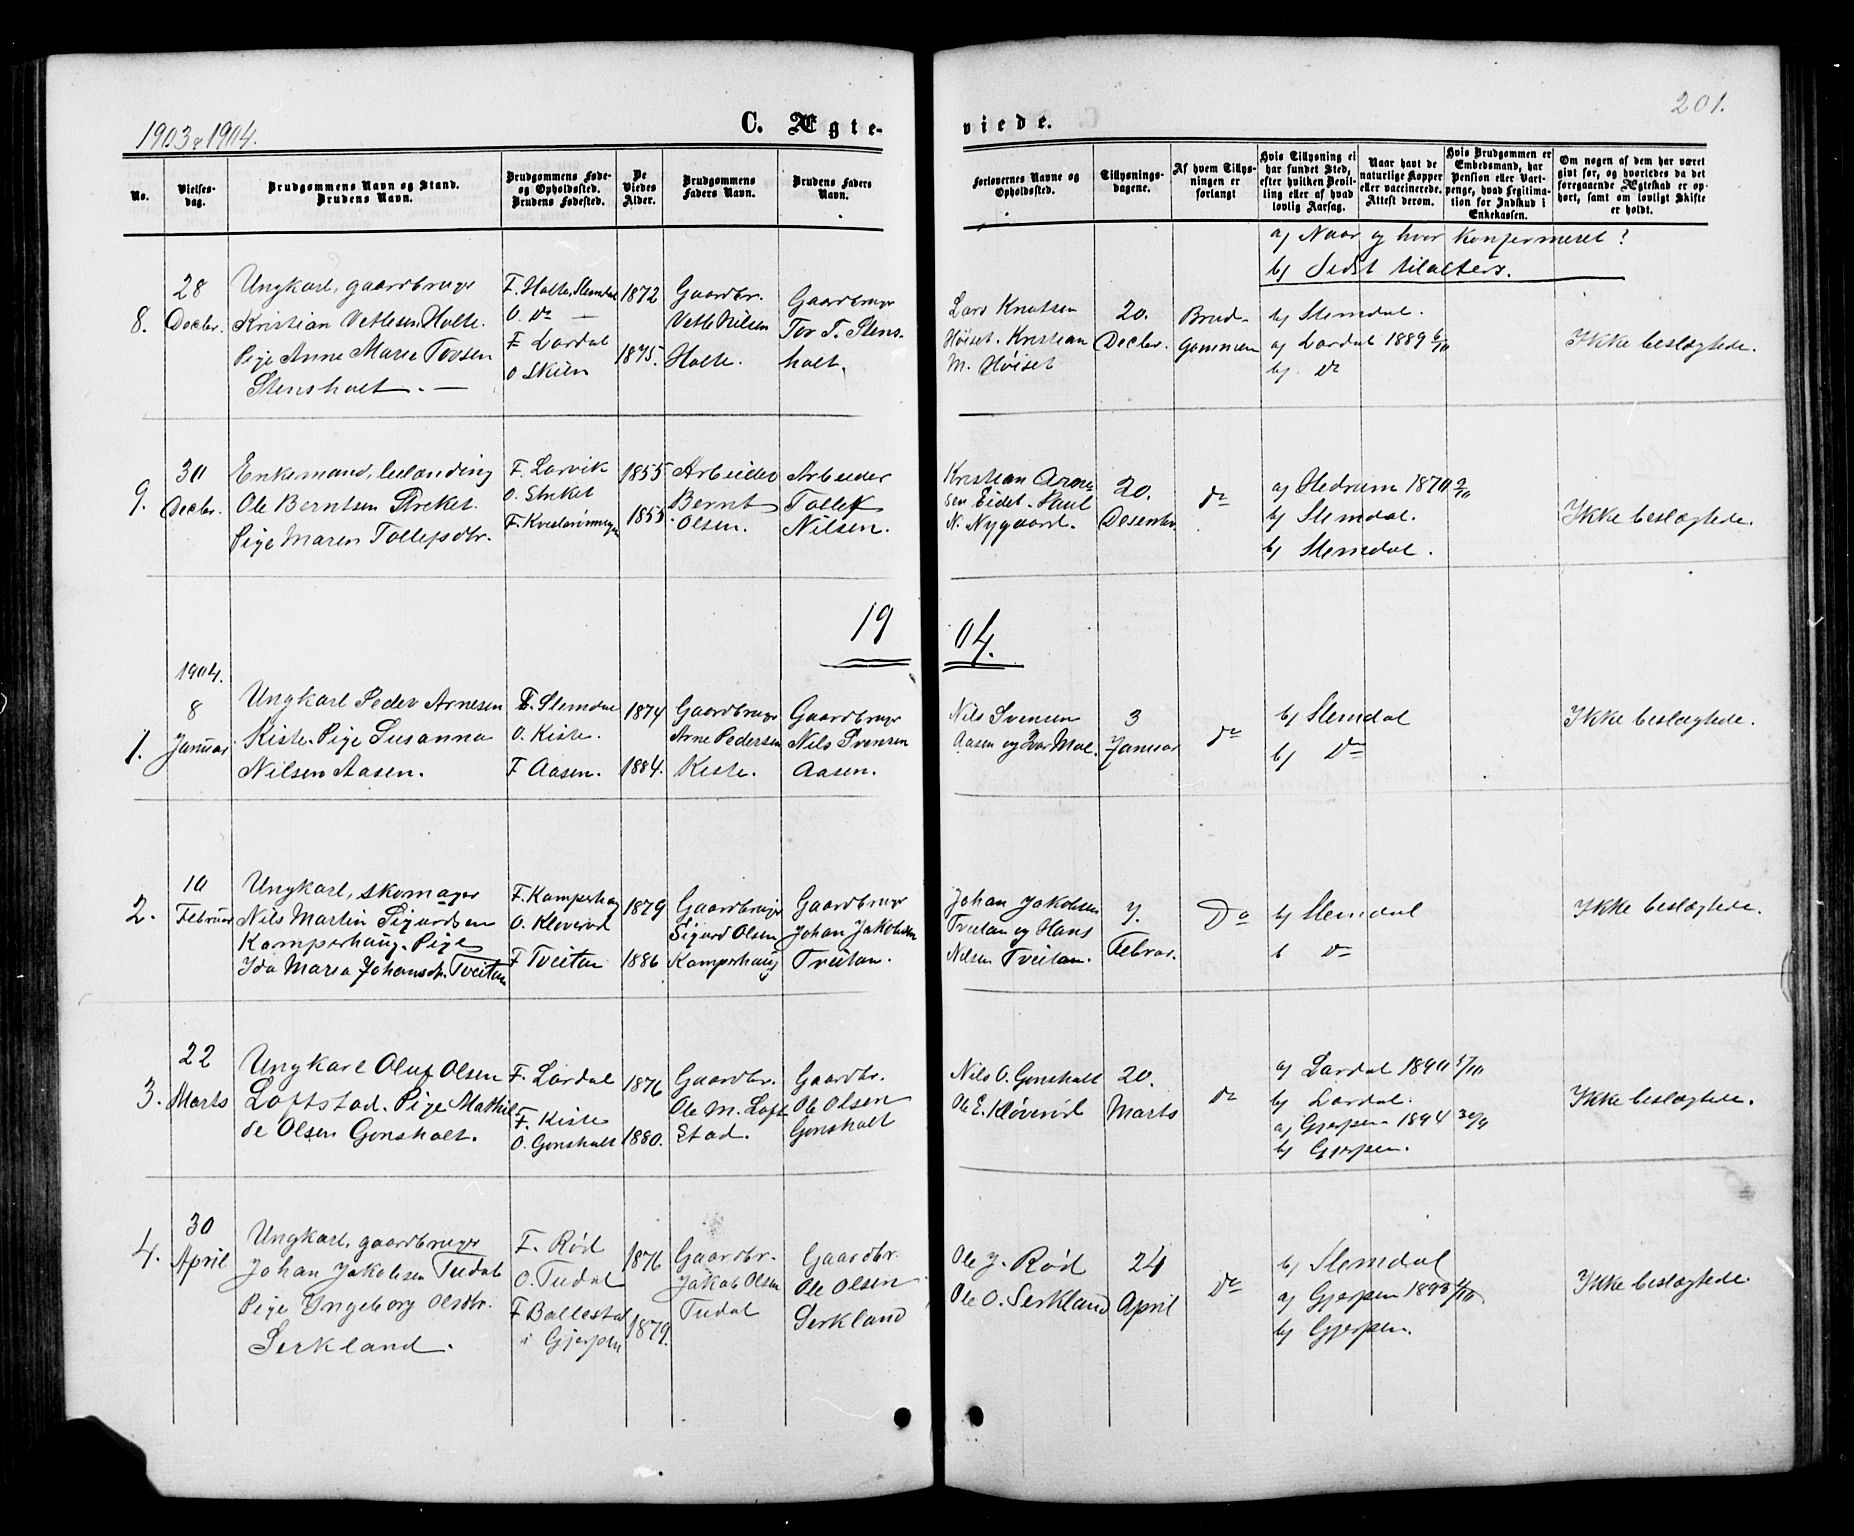 1903 & 1904.
C. Ægte-
viede.
201.
No.
Vielses-
dag.
Brudgommens Navn og Stand.
Brudens Navn.
Brudgommens Føde-
og Opholdssted.
Brudens Fødested.
De
Viedes
Alder.
Brudgommens
Faders Navn.
Brudens Faders
Navn.
Forlovernes Navne og
Opholdssted.
Tillysnings-
dagene.
Af hvem Tillys-
ningen er
forlangt
Hvis Tillysning ei
har fundet Sted,
efter hvilken Bevil-
ling eller af hvad
lovlig Aarsag.
Naar havt de
naturlige Kopper
eller vaccinerede.
Attest derom.
Hvis Brudgommen er
Embedsmand, har
Pension eller Vart-
penge, hvad Legitima-
tion for Indskud i
Enkekassen.
Om nogen af dem har været
givt før, og hvorledes da det
foregaaende Ægteskab er op-
hørt, samt om lovligt Skifte
er holdt.
a) Naar og hvor konfermeret?
b) Sidst tilalters.
8.
28
Decbr.
Ungkarl, gaardbruger
Kristian Vetlesen Holte.
Pige Anne Marie Torsen
Stensholt. —
F. Holte, Slemdal
O. do —
F Lardal
O Skien
1872
1875.
Gaardbr.
Vetle Nilsen
Holte.
Gaardbruger
Tor T. Stens-
holt.
Lars Knutsen
Høiset. Kristian
M. Høiset
20.
Decbr.
Brud-
gommen
b) Slemdal.
a) Lardal 1889 6/10
b) do
Ikke beslægtede.
9.
30
Decbr.
Enkemand, leilænding
Ole Berntsen Streket.
Pige Maren Tollefsdtr.
F. Larvik
O. Streket
1855
1855
Arbeider
Bernt
Olsen.
Arbeider
Tollef
Nilsen.
Kristian Aron
sen Eidet. Paul
N. Nygaard.
20.
Desember
do
a) Hedrum 1870 2/10
b) Slemdal.
b) Slemdal.
Ikke beslægtede.
19
04.
1904.
1.
8
Januar
Ungkarl Peder Arnesen
Kiste. Pige Susanna
Nilsen Aasen.
F. Slemdal
O. Kiste.
F Aasen.
1874
1884.
Gaardbruger
Arne Pedersen
Kiste.
Gaardbruger
Nils Svensen
Aasen.
Nils Svensen
Aasen og Ivar Moe.
3
Januar
do
b) Slemdal
b) do
Ikke beslægtede.
2.
10
Februar
Ungkarl, skomager
Nils Martin Sigurdsen
Kamperhaug. Pige
Ida Maria Johansdt. Tveitan
F. Kamperhaug
O. Kleverød
F Tveitan
1879
1886
Gaardbruger
Sigurd Olsen
Kamperhaug
Gaardbruger
Johan Jakobsen
Tveitan.
Johan Jakobsen
Tveitan og Hans
Nilsen Tveitan.
7.
Februar.
Do
b) Slemdal
b do
Ikke beslægtede.
3.
22
Marts
Ungkarl Oluf Olsen
Loftstad. Pige Mathil-
de Olsen Gonsholt.
F. Lardal
F. Kiste
O. Gonsholt
1876
1880.
Gaardbr.
Ole M. Loft
Stad.
Gaardbr.
Ole Olsen
Gonsholt
Nils O. Gonsholt
Ole E. Kløverød
20.
Marts
do
a) Lardal 1890 5/10
b) Lardal.
a) Gjerpen 1894 30/9
b) Gjerpen.
Ikke beslægtede.
4.
30
April
Ungkarl, gaardbruger
Johan Jakobsen Tudal
Pige Ingeborg Olsdtr.
Serkland.
F. Rød
O. Tudal
F Ballestad
i Gjerpen
1876
1879.
Gaardbr.
Jakob Olsen
Tudal
Gaardbr.
Ole Olsen
Serkland
Ole J. Rød
Ole O. Serkland
24
April
Do
b) Slemdal
a) Gjerpen 1893
b) Gjerpen.
Ikke beslægtede.